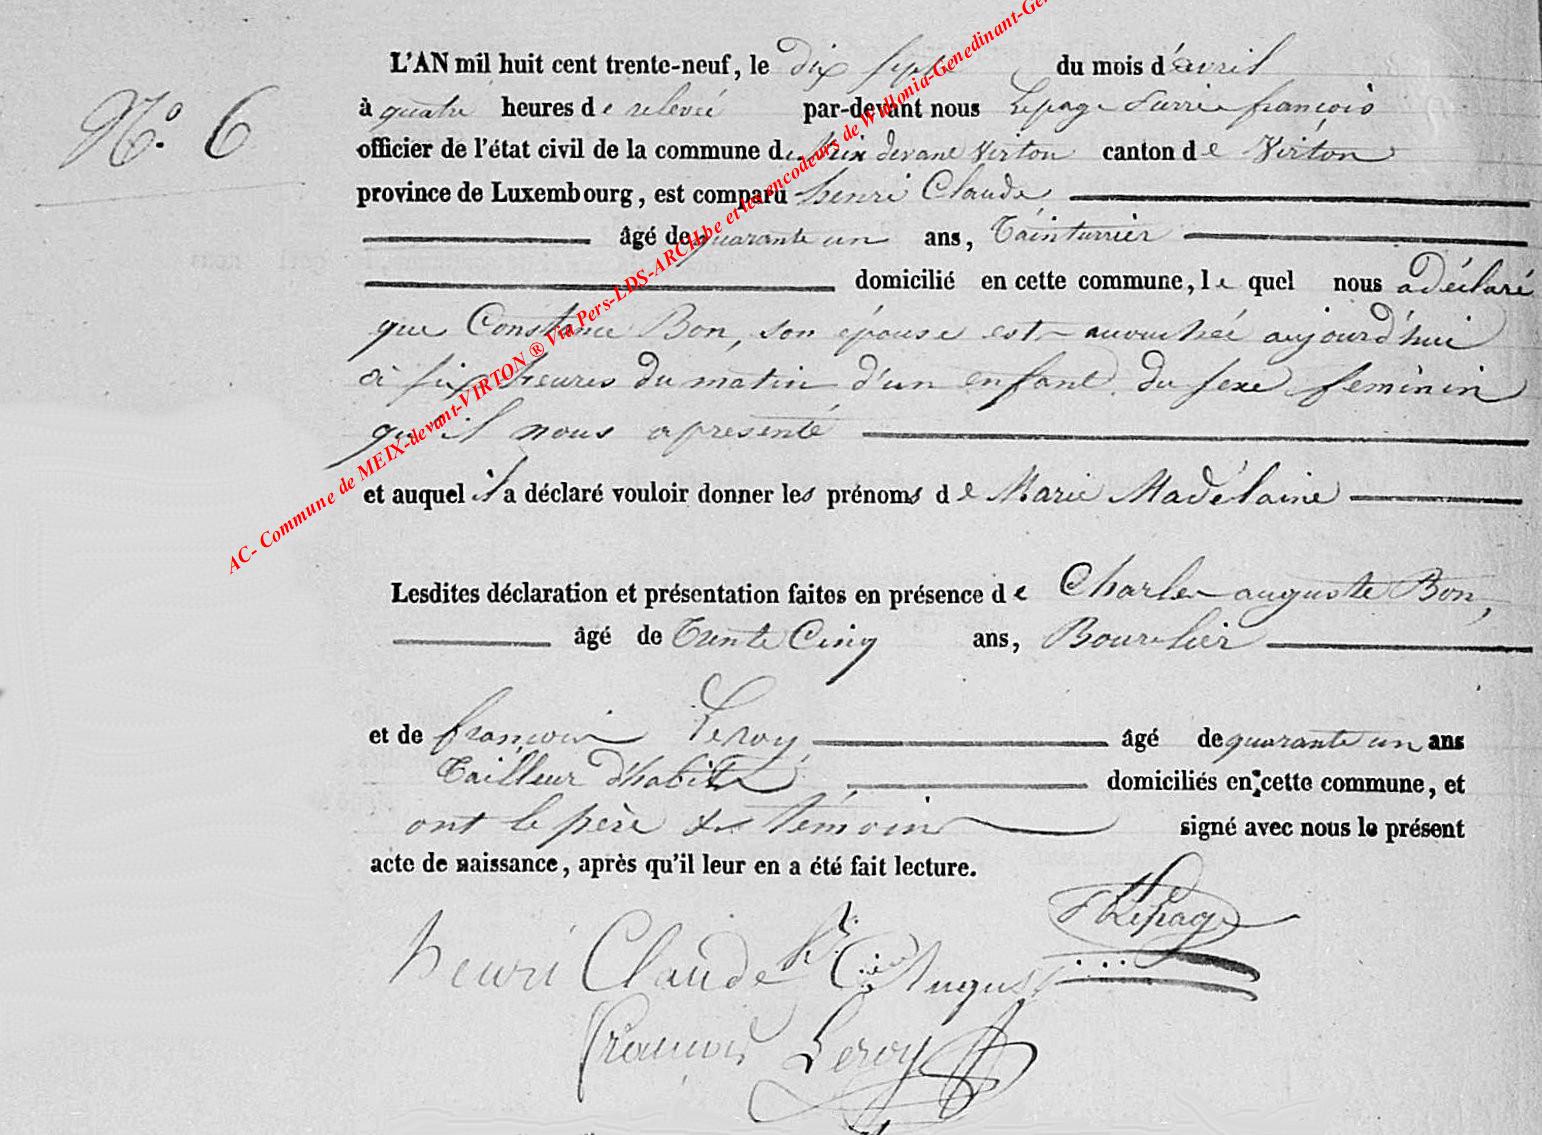 N.° 6
L'AN mil huit cent trente-neuf, le dix sept du mois d'avril
à quatre heures de relevée par-devant nous Lepage Pierre françois
officier de l'état civil de la commune de Meix devant Virton canton de Virton
province de Luxembourg, est comparu henri Claude
âgé de quarante un ans, Tainturrier
domicilié en cette commune, le quel nous a déclaré
que Constance Bon, son épouse est accouchée aujourd'hui
à six heures du matin d'un enfant du sexe feminin
qu'il nous a présenté
et auquel il a déclaré vouloir donner les prénoms de Marie Madélaine
Lesdites déclaration et présentation faites en présence de Charles auguste Bon,
âgé de Trente Cinq ans, Bourelier
et de françois Leroy, âgé de quarante un ans
Tailleur d'habits, domiciliés en cette commune, et
ont le père & témoin signé avec nous le présent
acte de naissance, après qu'il leur en a été fait lecture.
Lepage
henri Claude August
François Leroy
AC- Commune de MEIX-devant-VIRTON ® Via Pers-LDS-ARCH.be et les encodeurs de Wallonia-Genedinant-Ge